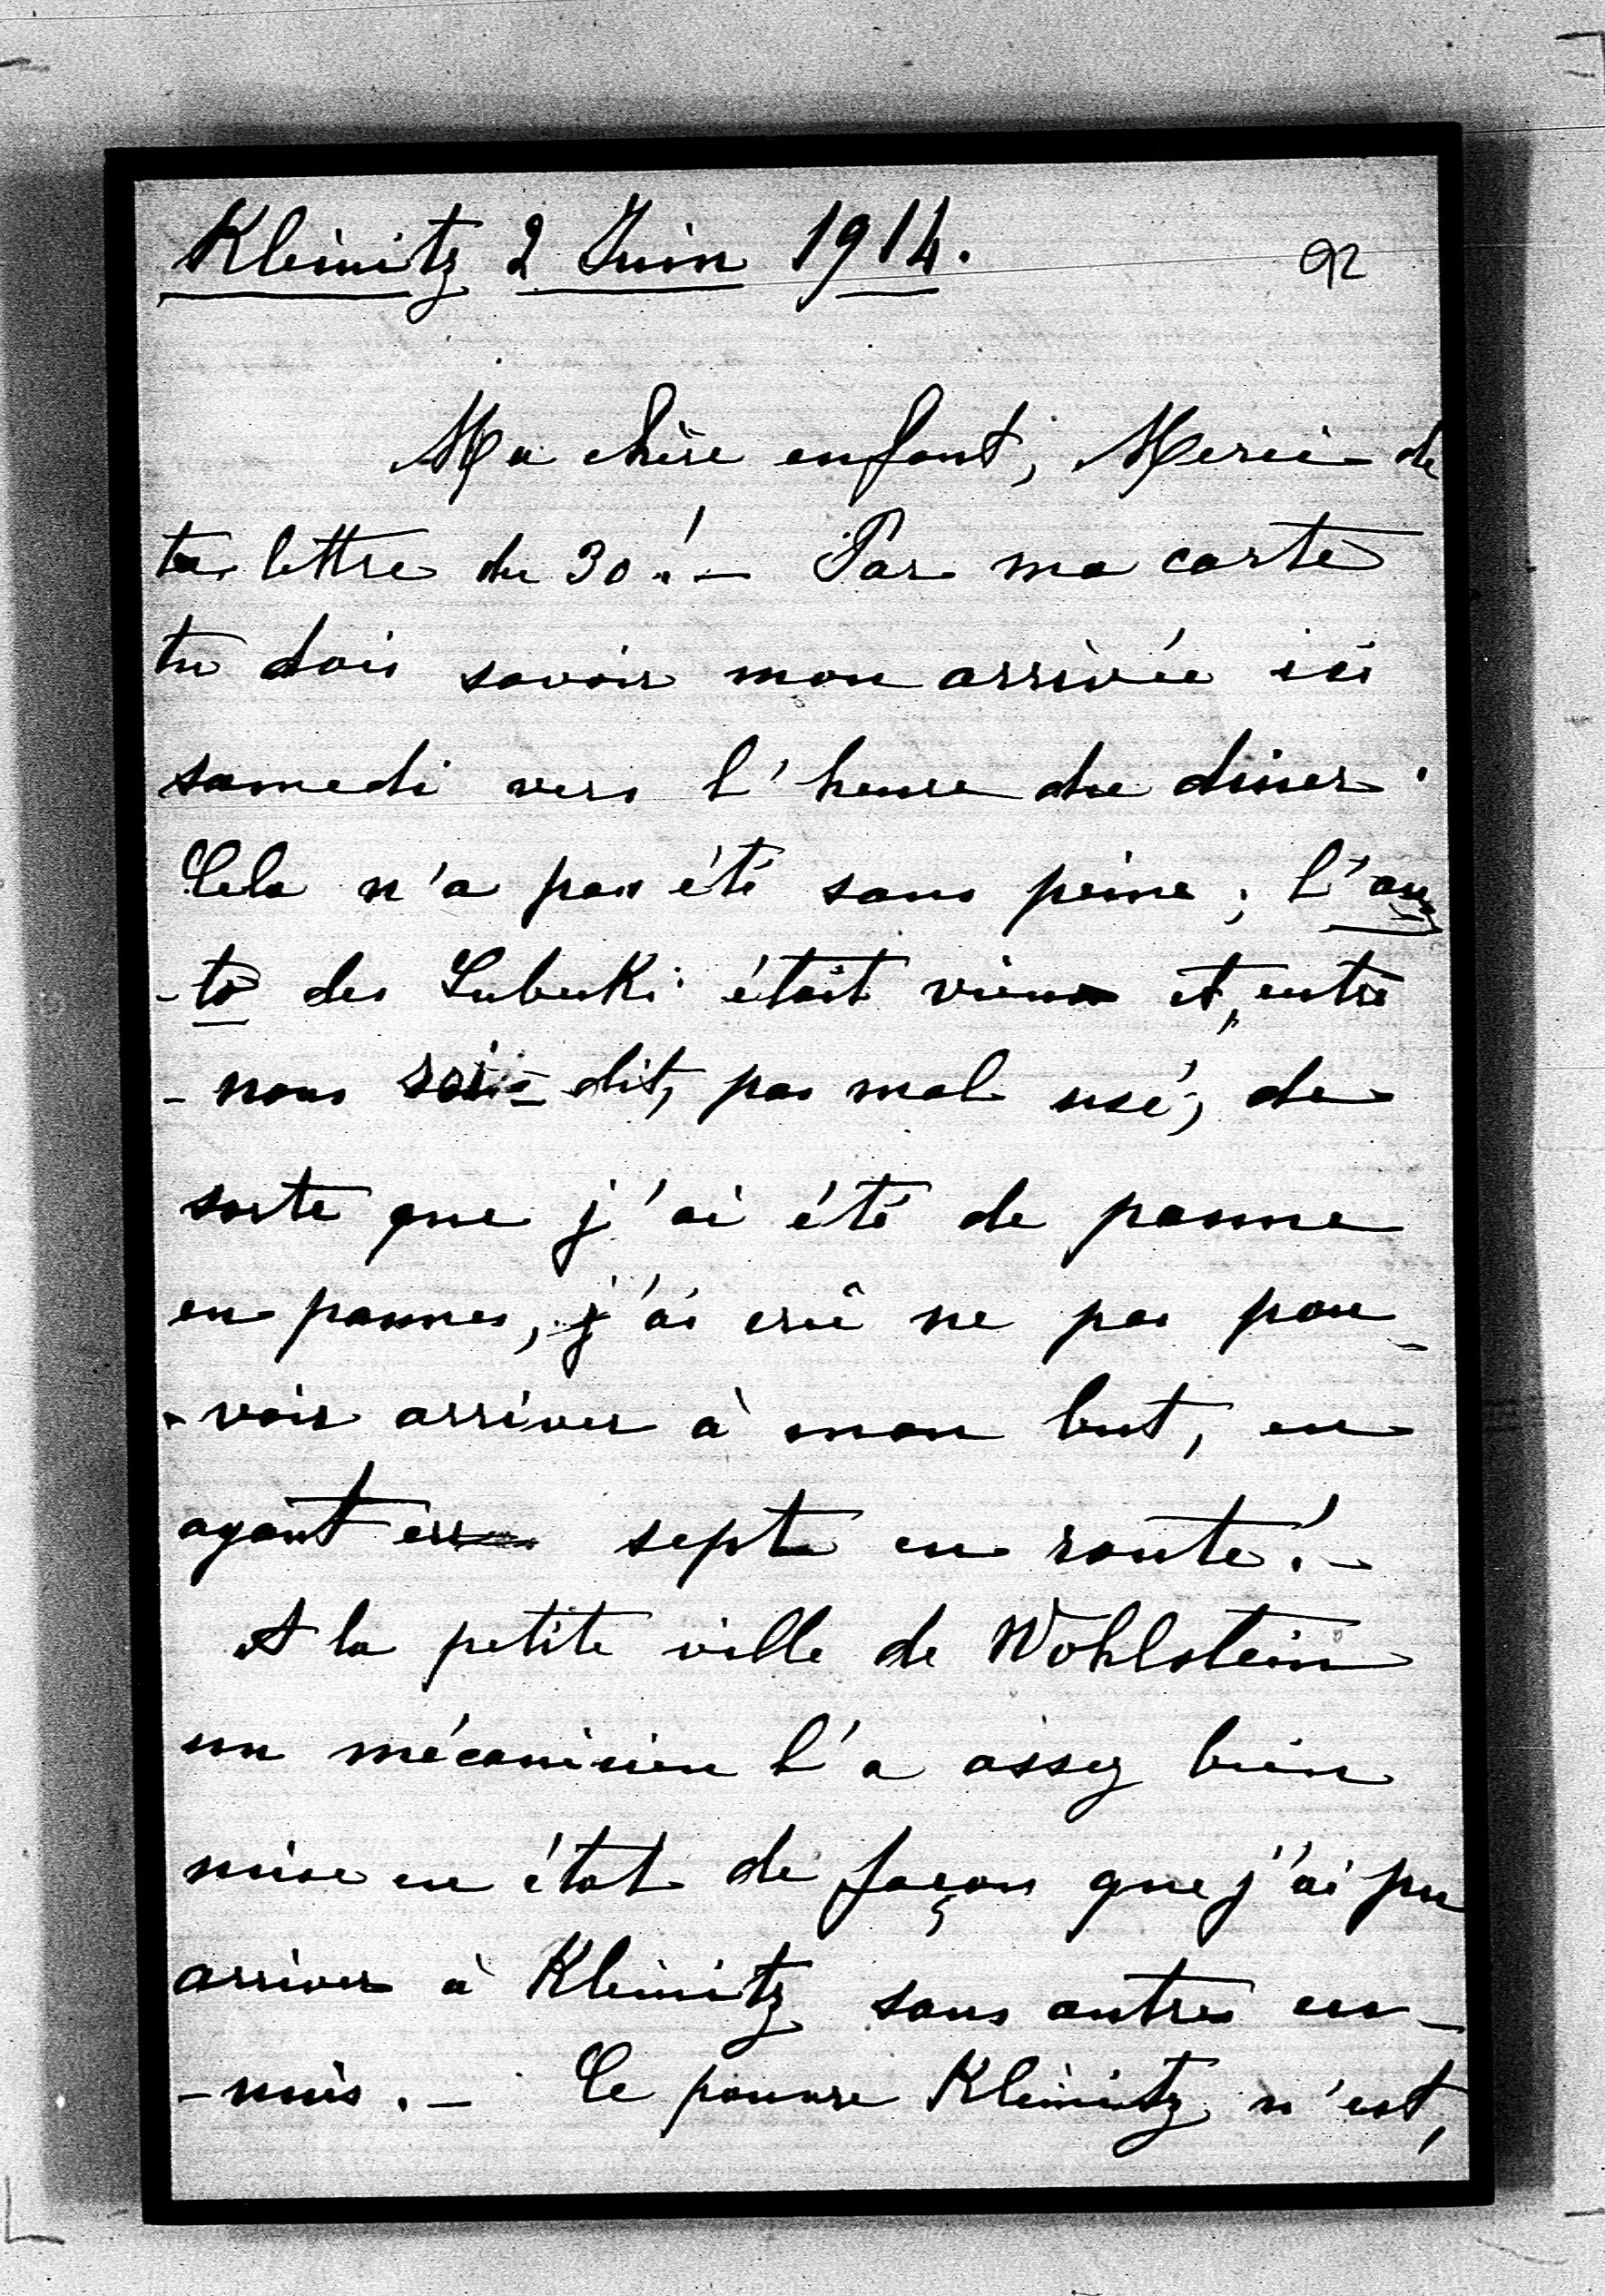 Kleinitz 2 Juin 1914.
92
Ma chère enfant, Merci de
ta lettre du 30! — Par ma carte
tu dois savoir mon arrivée ici
samedi vers l'heure du diner.
Cela n'a pas été sans peine; l'au
-to des Lubecki était vieux et, entre
-nous soit-dit, pas mal usé, de
sorte que j'ai été de panne
en pannes, j'ai crû ne pas pou-
-voir arriver à mon but, en
ayant sept en route! —
A la petite ville de Wohlstein
un mécanicien l'a assez bien
mise en état de façon que j'ai pu
arriver à Kleinitz sans autres en-
-nuis. — Ce pauvre Kleinitz n'est,